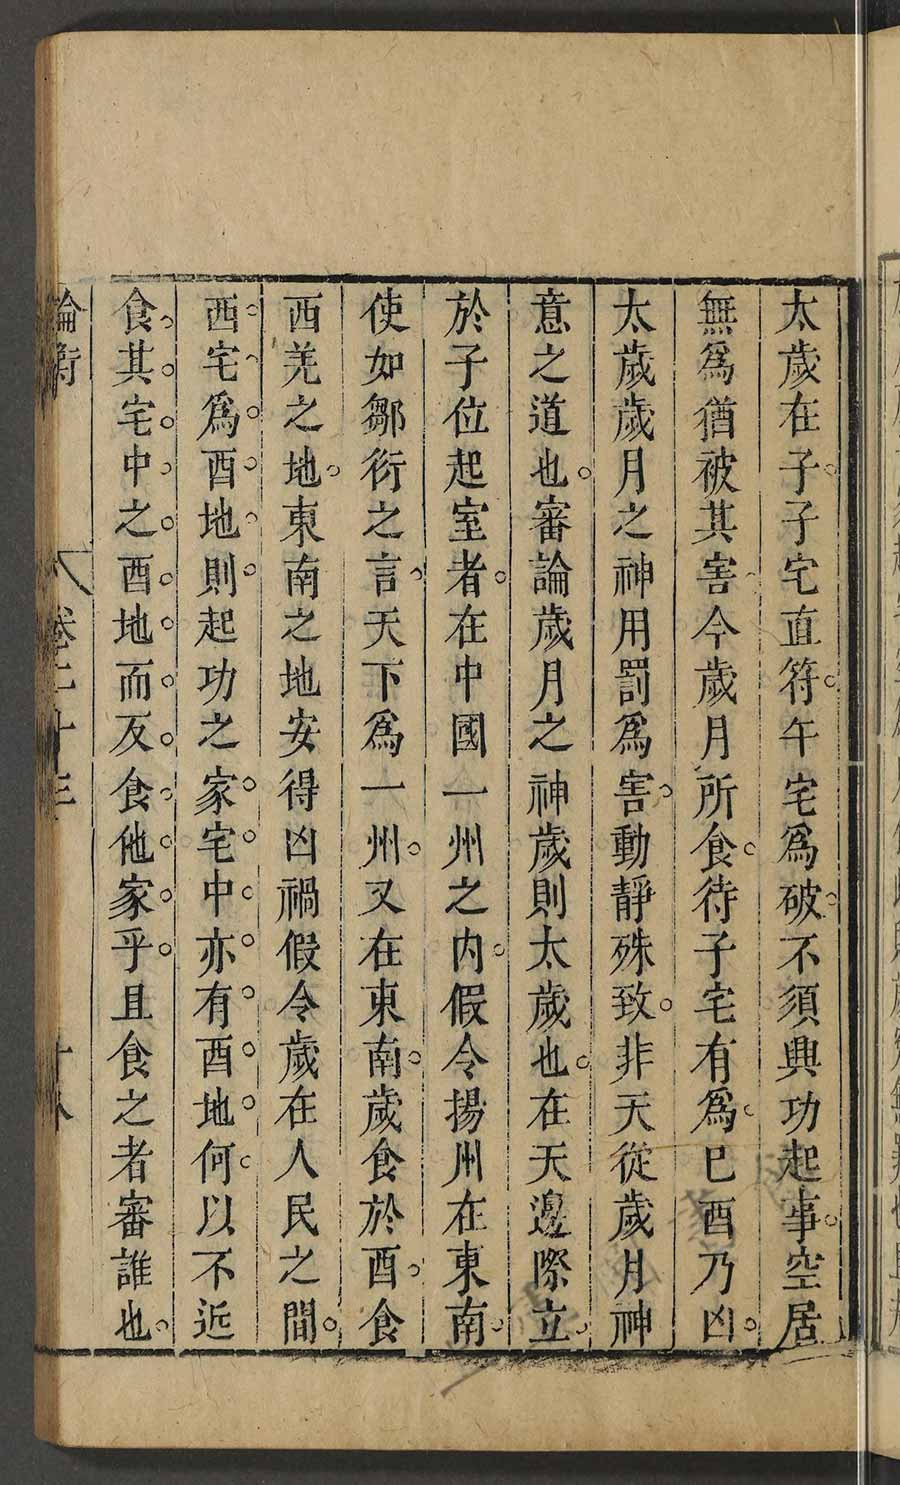 太歲在子子宅直符午宅爲破不須興功起事空居
無爲猶被其害今歲月所食待子宅有爲巳酉乃凶
太歲歲月之神用罰爲害動靜殊致非天從歲月神
意之道也審論歲月之神歲則太歲也在天邊際立
於子位起室者在中國一州之内假令揚州在東南
使如鄒衍之言天下爲一州又在東南歲食於酉食
西羌之地東南之地安得凶禍假令歲在人民之間
西宅爲酉地則起功之家宅中亦有酉地何以不近
食其宅中之酉地而反食他家乎且食之者審誰也
論衡 卷二十三